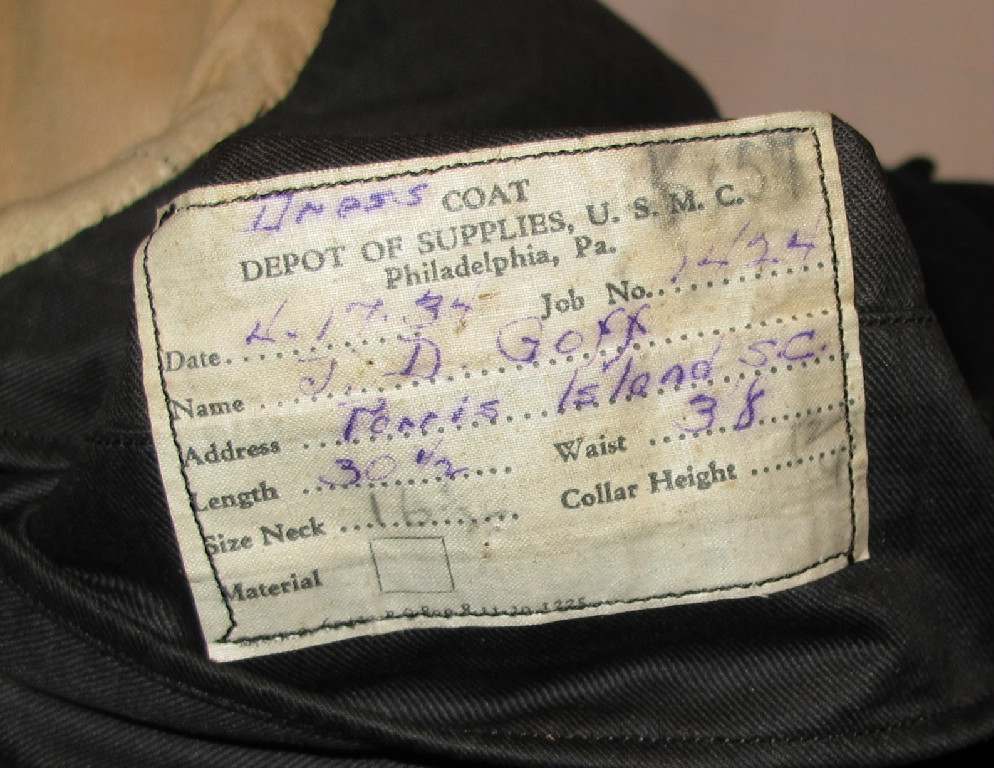 Dress COAT
DEPOT OF SUPPLIES, U. S. M. C.
Philadelphia, Pa.
Job No. 1424
Date 4-17-34
Name J. D. Goff
Address Parris Island S.C.
Length 30 1/2 Waist 38
Size Neck 16 Collar Height
Material